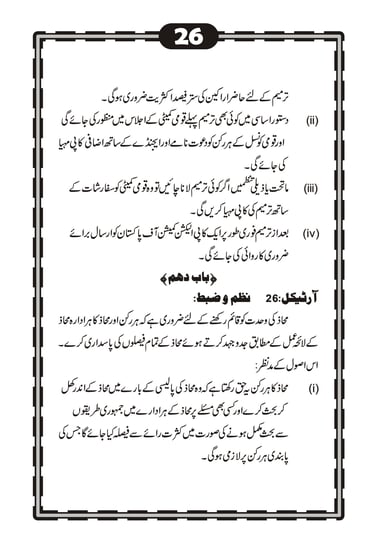 26
ترمیم کے لئے حاضر اراکین کی ستر فیصد اکثریت ضروری ہوگی۔
(ii) دستور اساسی میں کوئی بھی ترمیم پہلے قومی کمیٹی کے اجلاس میں منظور کی جائے گی
اور قومی کونسل کے ہر رکن کو دعوت نامے اور ایجنڈے کے ساتھ اضافی کاپی مہیا
کی جائے گی۔
(iii) ماتحت یا ذیلی تنظمیں اگر کوئی ترمیم لانا چاہیں تو وہ قومی کمیٹی کو سفارشات کے
ساتھ ترمیم کی کاپی مہیا کریں گی۔
(iv) بعد از ترمیم فوری طور پر ایک کاپی الیکشن کمیشن آف پاکستان کو ارسال برائے
ضروری کاروائی کی جائے گی۔
﴿باب دھم﴾
آرٹیکل:26 نظم و ضبط:
محاذ کی وحدت کو قائم رکھنے کے لئے ضروری ہے کہ ہر رکن اور محاذ کا ہر ادارہ محاذ
کے لائحہ عمل کے مطابق جدوجہد کرتے ہوئے محاذ کے تمام فیصلوں کی پاسداری کرے۔
اس اصول کے مدنظر:
(i) محاذ کا ہر رکن یہ حق رکھتا ہے کہ وہ محاذ کی پالیسی کے بارے میں محاذ کے اندر کھل
کر بحث کرے اور کسی بھی مسئلے پر محاذ کے ہر ادارے میں جمہوری طریقوں
سے بحث مکمل ہونے کی صورت میں کثرت رائے سے فیصلہ کیا جائے گا جس کی
پابندی ہر رکن پر لازمی ہوگی۔